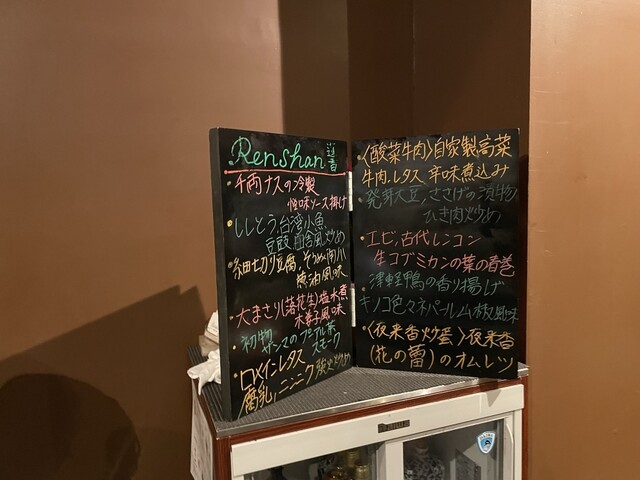 Renshan 蓮香
・千両ナスの冷製
怪味ソース掛け
・ししとう,台湾小魚
豆豉 醅合風炒め
・糸田切り豆腐,
葱油風味
・大まさり(落花生)塩水煮
木姜子風味
・初物 サンマのプーアル茶
スモーク
・ロメインレタス
腐乳,ニンニク強火炒め
・〈酸菜牛肉〉自家製高菜
牛肉,レタス 辛味煮込み
・発芽大豆,ささげの漬物
ひき肉炒め
・エビ,古代レンコン
生コブミカンの葉の春巻
・津軽鴨の香り揚げ
キノコ色々
・〈夜来香炒蛋〉夜来香
(花の蕾)のオムレツ